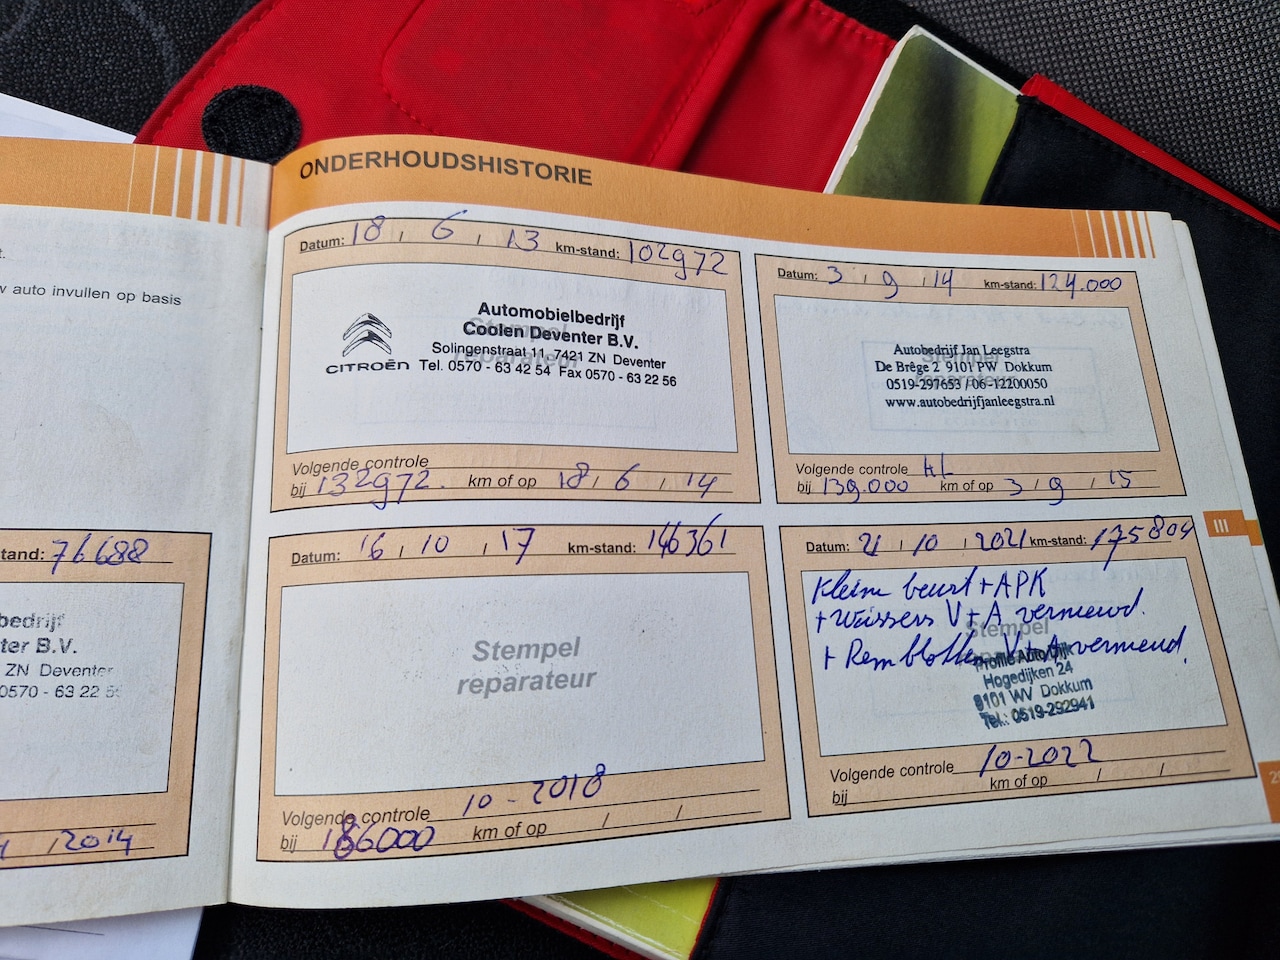 t.
w auto invullen op basis
tand: 76688
bedrijf
ter B.V.
ZN Deventer
0570 - 63 22 5
2014
ONDERHOUDSHISTORIE
Datum: 18 / 6 / 13 km-stand: 102972
Stempel
reparateur
Automobielbedrijf
Coolen Deventer B.V.
Solingenstraat 11 7421 ZN Deventer
CITROËN Tel. 0570 - 63 42 54 Fax 0570 - 63 22 56
Volgende controle
bij 132972. km of op 18 / 6 / 14
Datum: 3 / 9 / 14 km-stand: 124.000
Stempel
reparateur
Autobedrijf Jan Leegstra
De Brêge 2 9101 PW Dokkum
0519-297653 / 06-12200050
www.autobedrijfjanleegstra.nl
Volgende controle
bij 139.000 km of op 3 / 9 / 15
Datum: 16 / 10 / 17 km-stand: 146361
Stempel
reparateur
Volgende controle 10 - 2018
bij 186000 km of op / /
Datum: 21 / 10 / 2021 km-stand: 175804
Kleine beurt + APK
+ Wissers V + A vernieuwd.
+ Remblokken V + A vernieuwd.
Stempel
Profile Auto Dijk
Hogedijken 24
9101 WV Dokkum
Tel.: 0519-292941
Volgende controle 10-2022
bij km of op / /
III